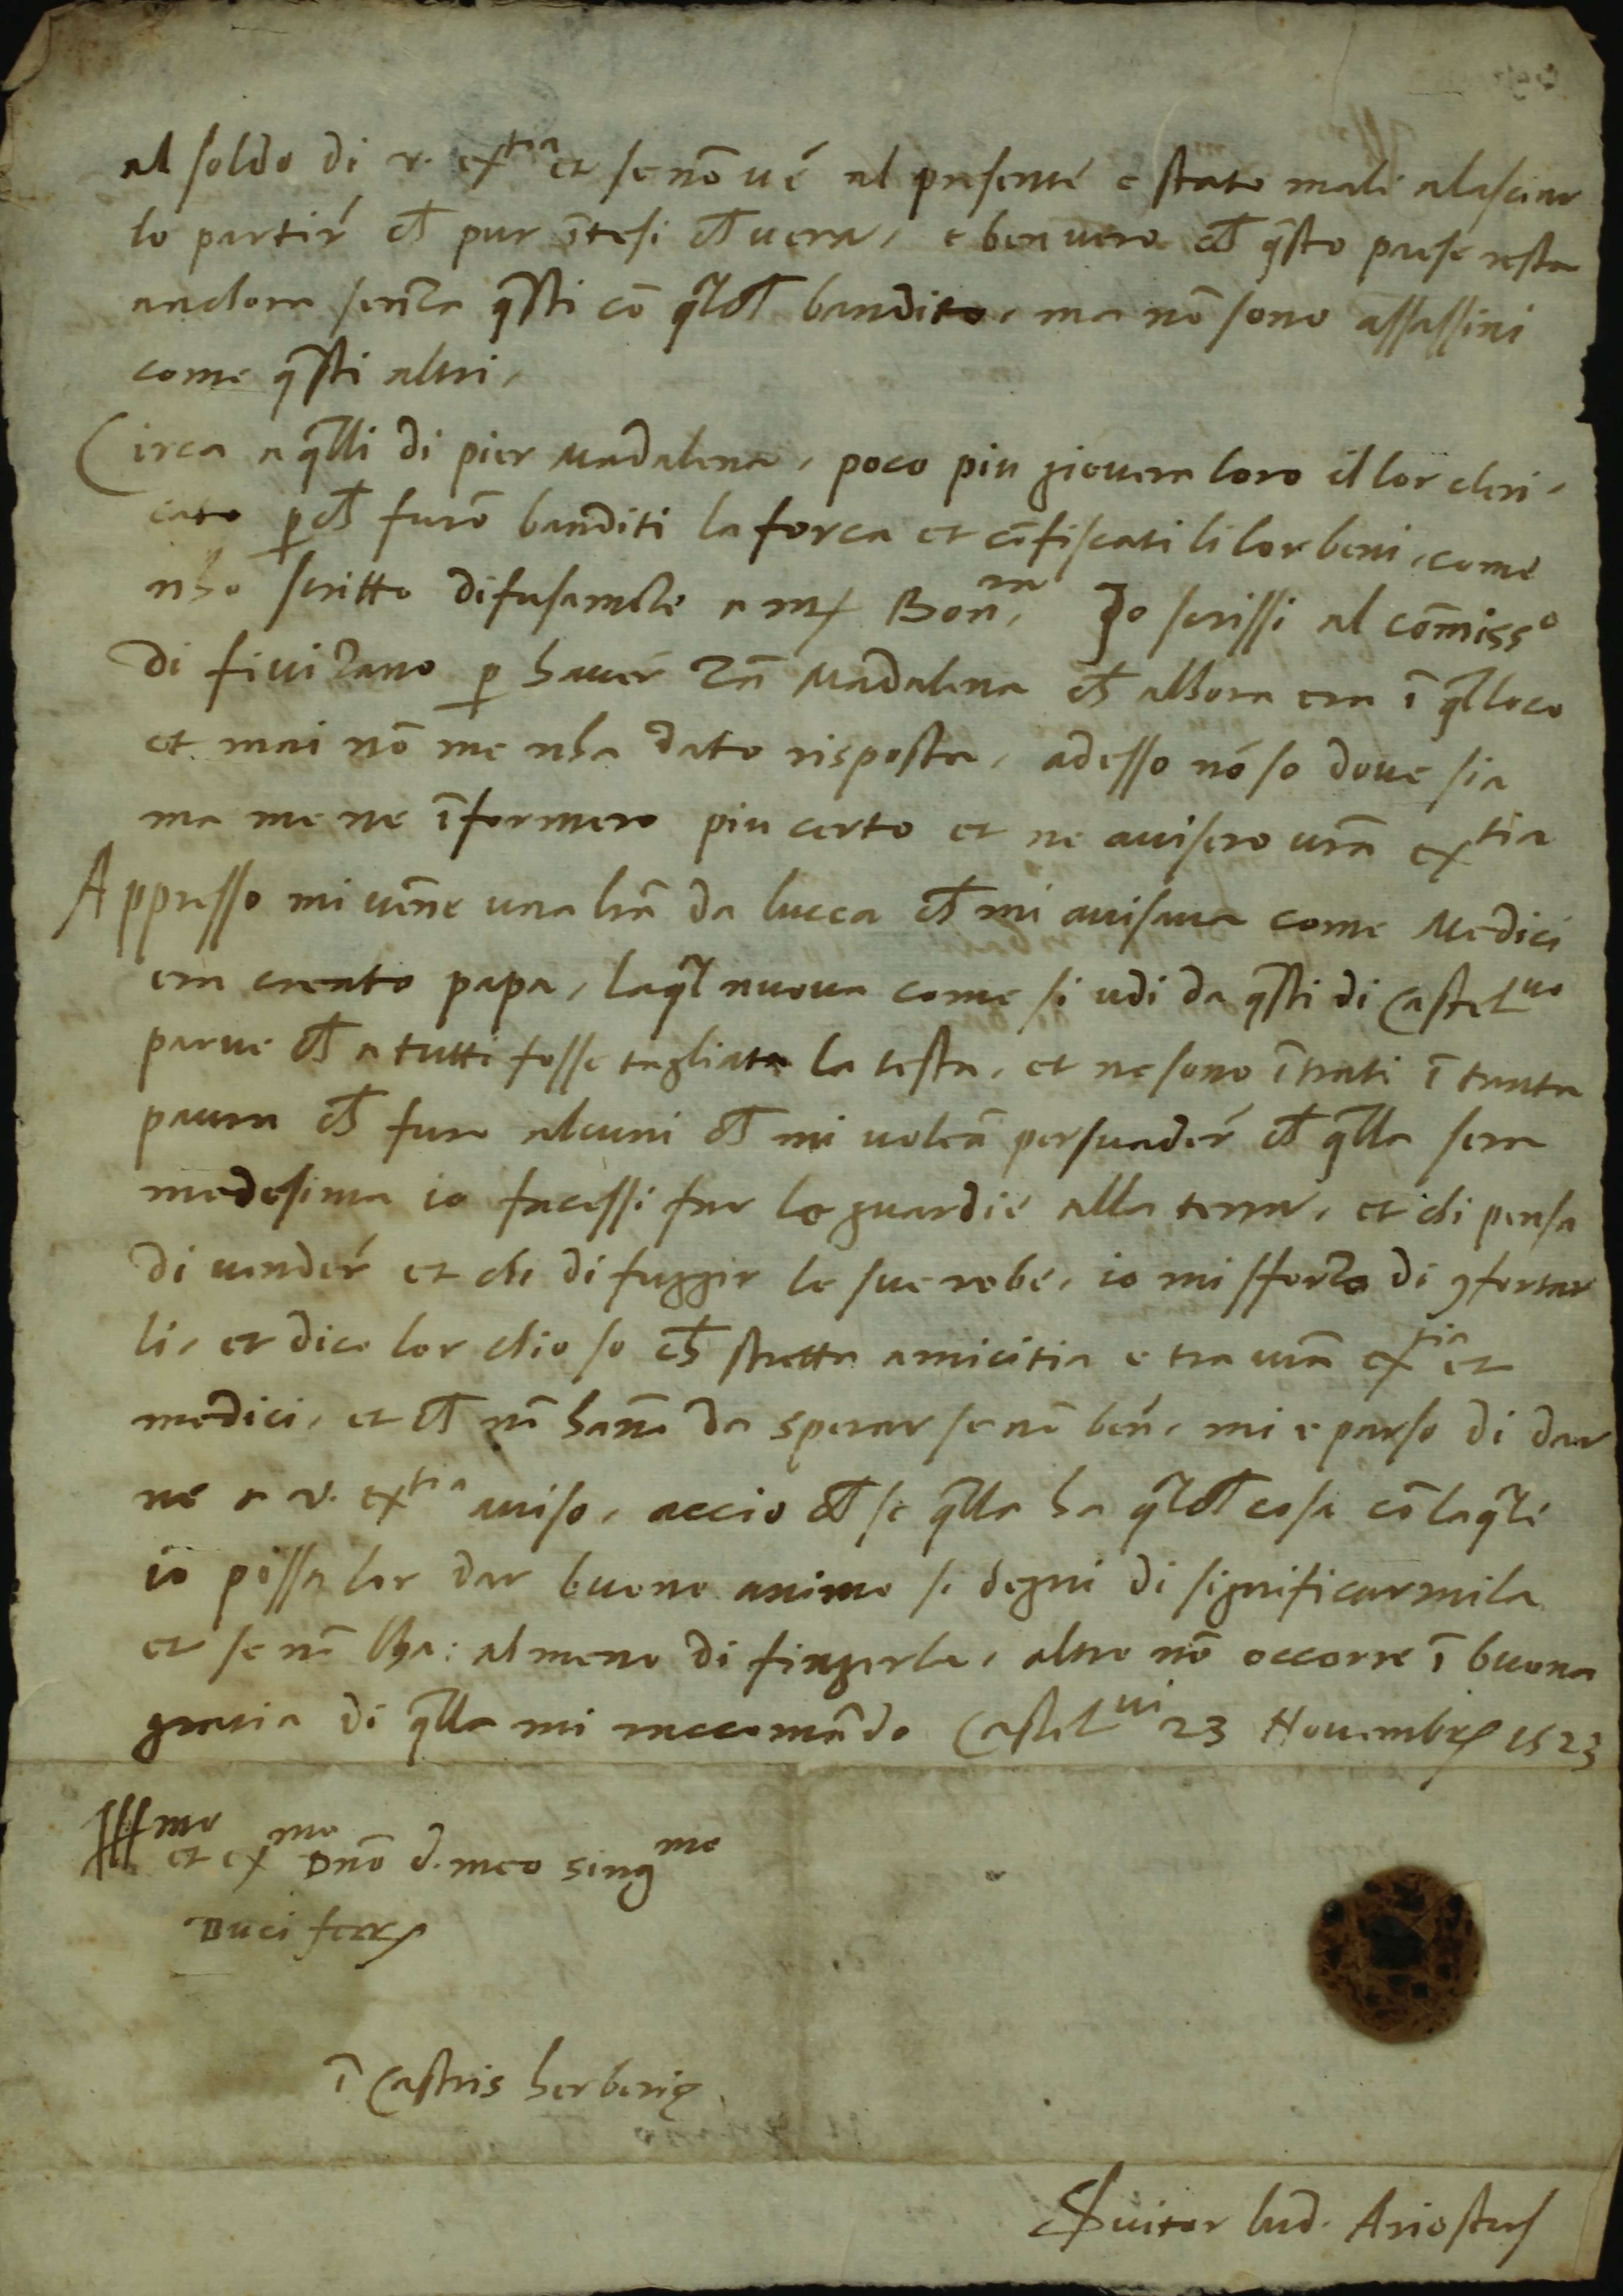 al soldo di v. ex^tia et se nō u é al presente e stato male a lasciar
lo partir ch̄ pur ītesi ch̄ uera, e ben uero ch̄ q̄sto paese resta
anchora senza q̄sti cō q̄lch̄ bandito, ma nō sono assassini
come q̄sti altri,
Circa a q̄lli di pier Madalena, poco piu giouera loro il lor cleri,
cato p̱ch̄ furō banditi la forca et cōfiscati li lor beni, come
nho scritto difusamēte a mſ Bon^na, Io scrissi al cōmiss^o
di fiuizano p̱ hauer zā Madalena ch̄ alhora era ī q̄l loco
et mai nō me nha dato risposta, adesso nō so doue sia
ma me ne īformero piu certo et ne auisero urā ex^tia
Appresso mi uēne una lrā da lucca ch̄ mi auisaua come Medici
era creato papa, laq̄l nuoua come si udi da q̄sti di Castel^uo
parue ch̄ a tutti fosse tagliata la testa, et ne sono ītrati ī tanta
paura ch̄ furo alcuni ch̄ mi uoleā persuader ch̄ q̄lla sera
medesima io facessi far le guardie alla terra, et chi pensa
di uender et chi di fuggir le sue robe, io mi sforzo di ꝯfortar
li, et dico lor chio so ch̄ stretta amicitia e tra urā ex^tia et
medici, et ch̄ nō hāno da sperar se nō ben, mi e parso di dar
ne a v. ex^tia auiso, accio ch̄ se q̄lla ha q̄lch̄ cosa cō laq̄le
io possa lor dar buono animo si degni di significarmila
et se nō lha: almeno di fingerla, altro nō occorre ī buona
gratia di q̄lla mi raccomādo Castel^ui 23 Nouembrꝭ 1523
Ill^mo et ex^mo Dnō d. meo sing^mo
Duci ferrꝭ
ī Castris herberię
Seruitor Lud. Ariostus